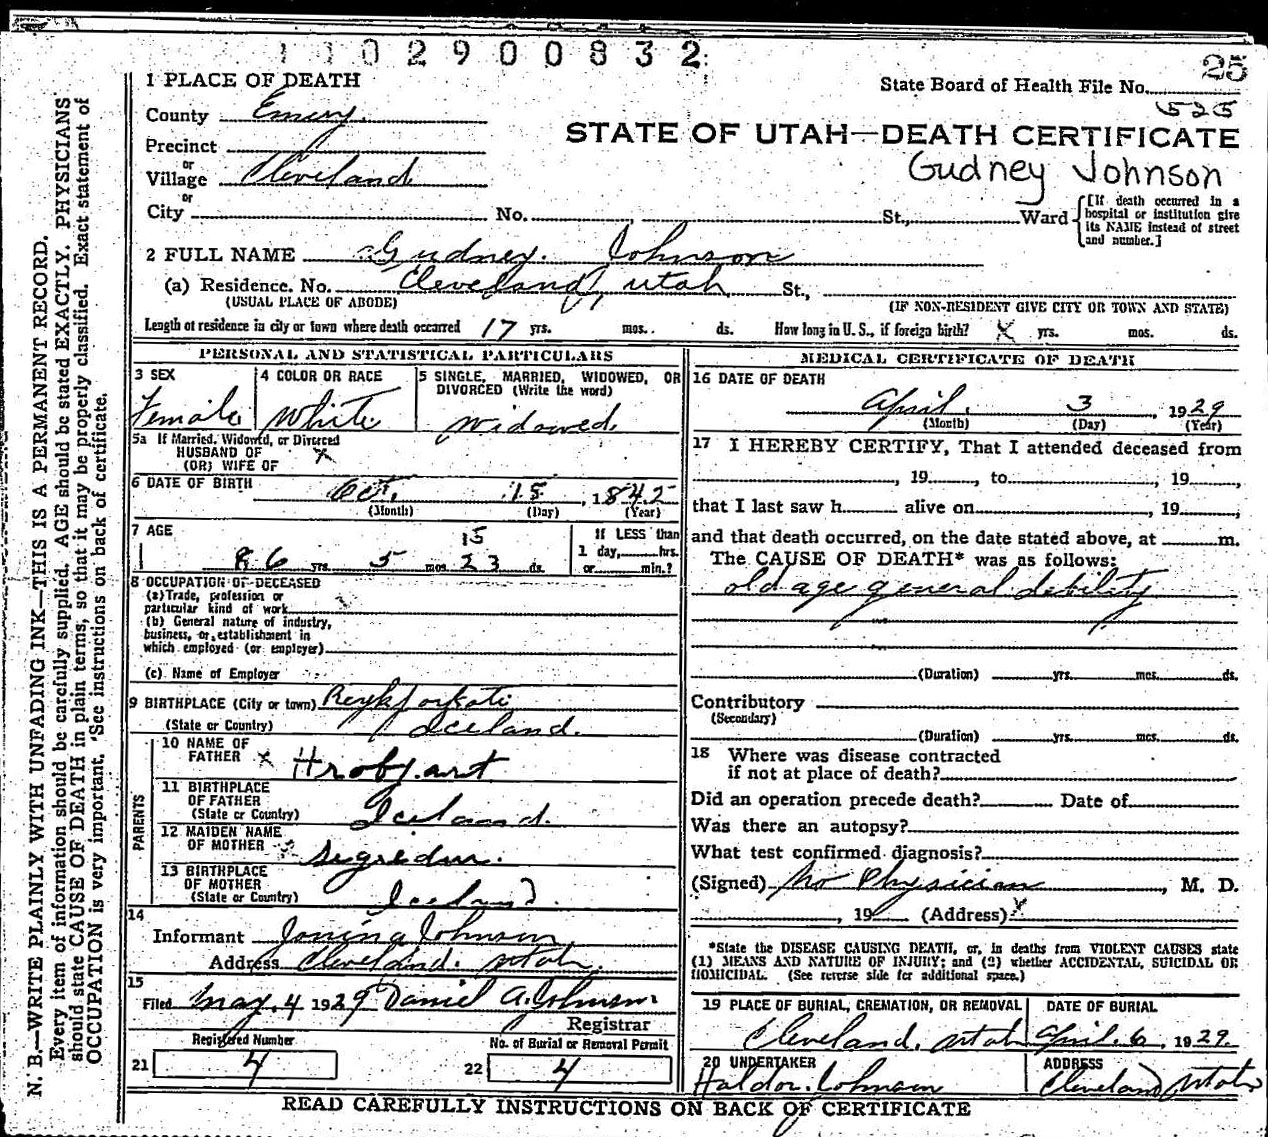 1 1 0 2 9 0 0 8 3 2
25
1 PLACE OF DEATH
State Board of Health File No.
525
County Emery
STATE OF UTAH—DEATH CERTIFICATE
Precinct
Gudney Johnson
or
Village Cleveland
or
City No. , St., Ward
[If death occurred in a
hospital or institution give
its NAME instead of street
and number.]
2 FULL NAME Gudney Johnson
(a) Residence. No. Cleveland, Utah St.,
(USUAL PLACE OF ABODE) (IF NON-RESIDENT GIVE CITY OR TOWN AND STATE)
Length of residence in city or town where death occurred 17 yrs. mos. ds. How long in U. S., if foreign birth? X yrs. mos. ds.
PERSONAL AND STATISTICAL PARTICULARS
3 SEX
Female
4 COLOR OR RACE
White
5 SINGLE, MARRIED, WIDOWED, OR
DIVORCED (Write the word)
Widowed
5a If Married, Widowed, or Divorced
HUSBAND OF X
(OR) WIFE OF
6 DATE OF BIRTH Oct. 15, 1842
(Month) (Day) (Year)
7 AGE
15
86 yrs. 5 mos. 23 ds.
If LESS than
1 day, hrs.
or min.?
8 OCCUPATION OF DECEASED
(a) Trade, profession or
particular kind of work
(b) General nature of industry,
business, or establishment in
which employed (or employer)
(c) Name of Employer
9 BIRTHPLACE (City or town)
(State or Country) Iceland.
PARENTS
10 NAME OF
FATHER X Hrobjart
11 BIRTHPLACE
OF FATHER
(State or Country) Iceland.
12 MAIDEN NAME
OF MOTHER Segredur.
13 BIRTHPLACE
OF MOTHER
(State or Country) Iceland.
14
Informant Jonina Johnson
Address Cleveland. Utah.
15
Filed May. 4 1929 Daniel A. Johnson
Registrar
Registered Number
21 4
No. of Burial or Removal Permit
22 4
MEDICAL CERTIFICATE OF DEATH
16 DATE OF DEATH
April. 3, 1929
(Month) (Day) (Year)
17 I HEREBY CERTIFY, That I attended deceased from
, 19 , to , 19 ,
that I last saw h alive on , 19 ,
and that death occurred, on the date stated above, at m.
The CAUSE OF DEATH* was as follows:
old age general debility
(Duration) yrs. mos. ds.
Contributory
(Secondary)
(Duration) yrs. mos. ds.
18 Where was disease contracted
if not at place of death?
Did an operation precede death? Date of
Was there an autopsy?
What test confirmed diagnosis?
(Signed) No Physician, M. D.
, 19 (Address) X
*State the DISEASE CAUSING DEATH, or, in deaths from VIOLENT CAUSES state
(1) MEANS AND NATURE OF INJURY; and (2) whether ACCIDENTAL, SUICIDAL OR
HOMICIDAL. (See reverse side for additional space.)
19 PLACE OF BURIAL, CREMATION, OR REMOVAL
Cleveland, Utah
DATE OF BURIAL
April. 6, 1929
20 UNDERTAKER
Haldor Johnson
ADDRESS
Cleveland Utah
READ CAREFULLY INSTRUCTIONS ON BACK OF CERTIFICATE
N. B.—WRITE PLAINLY WITH UNFADING INK—THIS IS A PERMANENT RECORD.
Every item of information should be carefully supplied. AGE should be stated EXACTLY. PHYSICIANS
should state CAUSE OF DEATH in plain terms, so that it may be properly classified. Exact statement of
OCCUPATION is very important. See instructions on back of certificate.